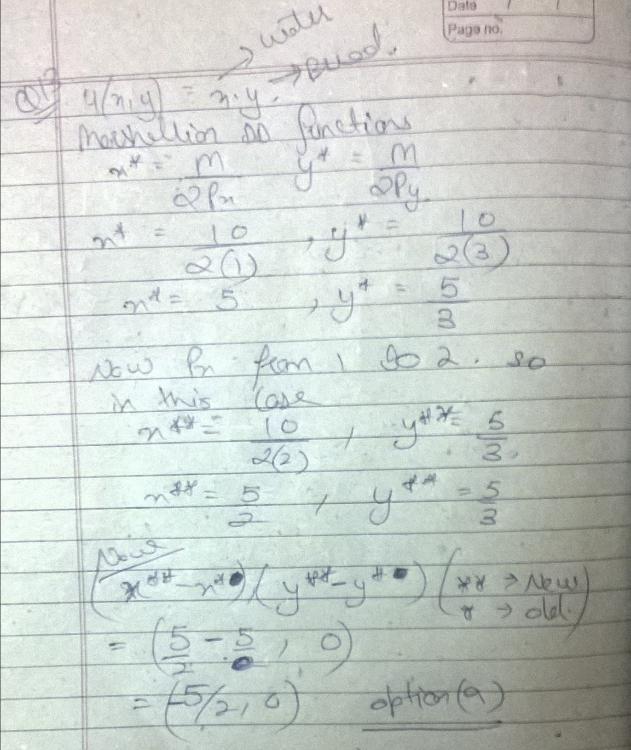 Date / /
Page no.
→ water
Q17 u(x,y) = x.y. → Bread.
Marshellian DD functions
x* = M/2Px y* = M/2Py.
x* = 10/2(1) , y* = 10/2(3)
x* = 5 , y* = 5/3
Now Px from 1 to 2. so
in this case
x** = 10/2(2) , y** = 5/3.
x** = 5/2 , y** = 5/3
Now
(x** - x*) (y** - y*) (** → New
* → old.)
= (5/2 - 5 , 0)
= (-5/2, 0) option (a)